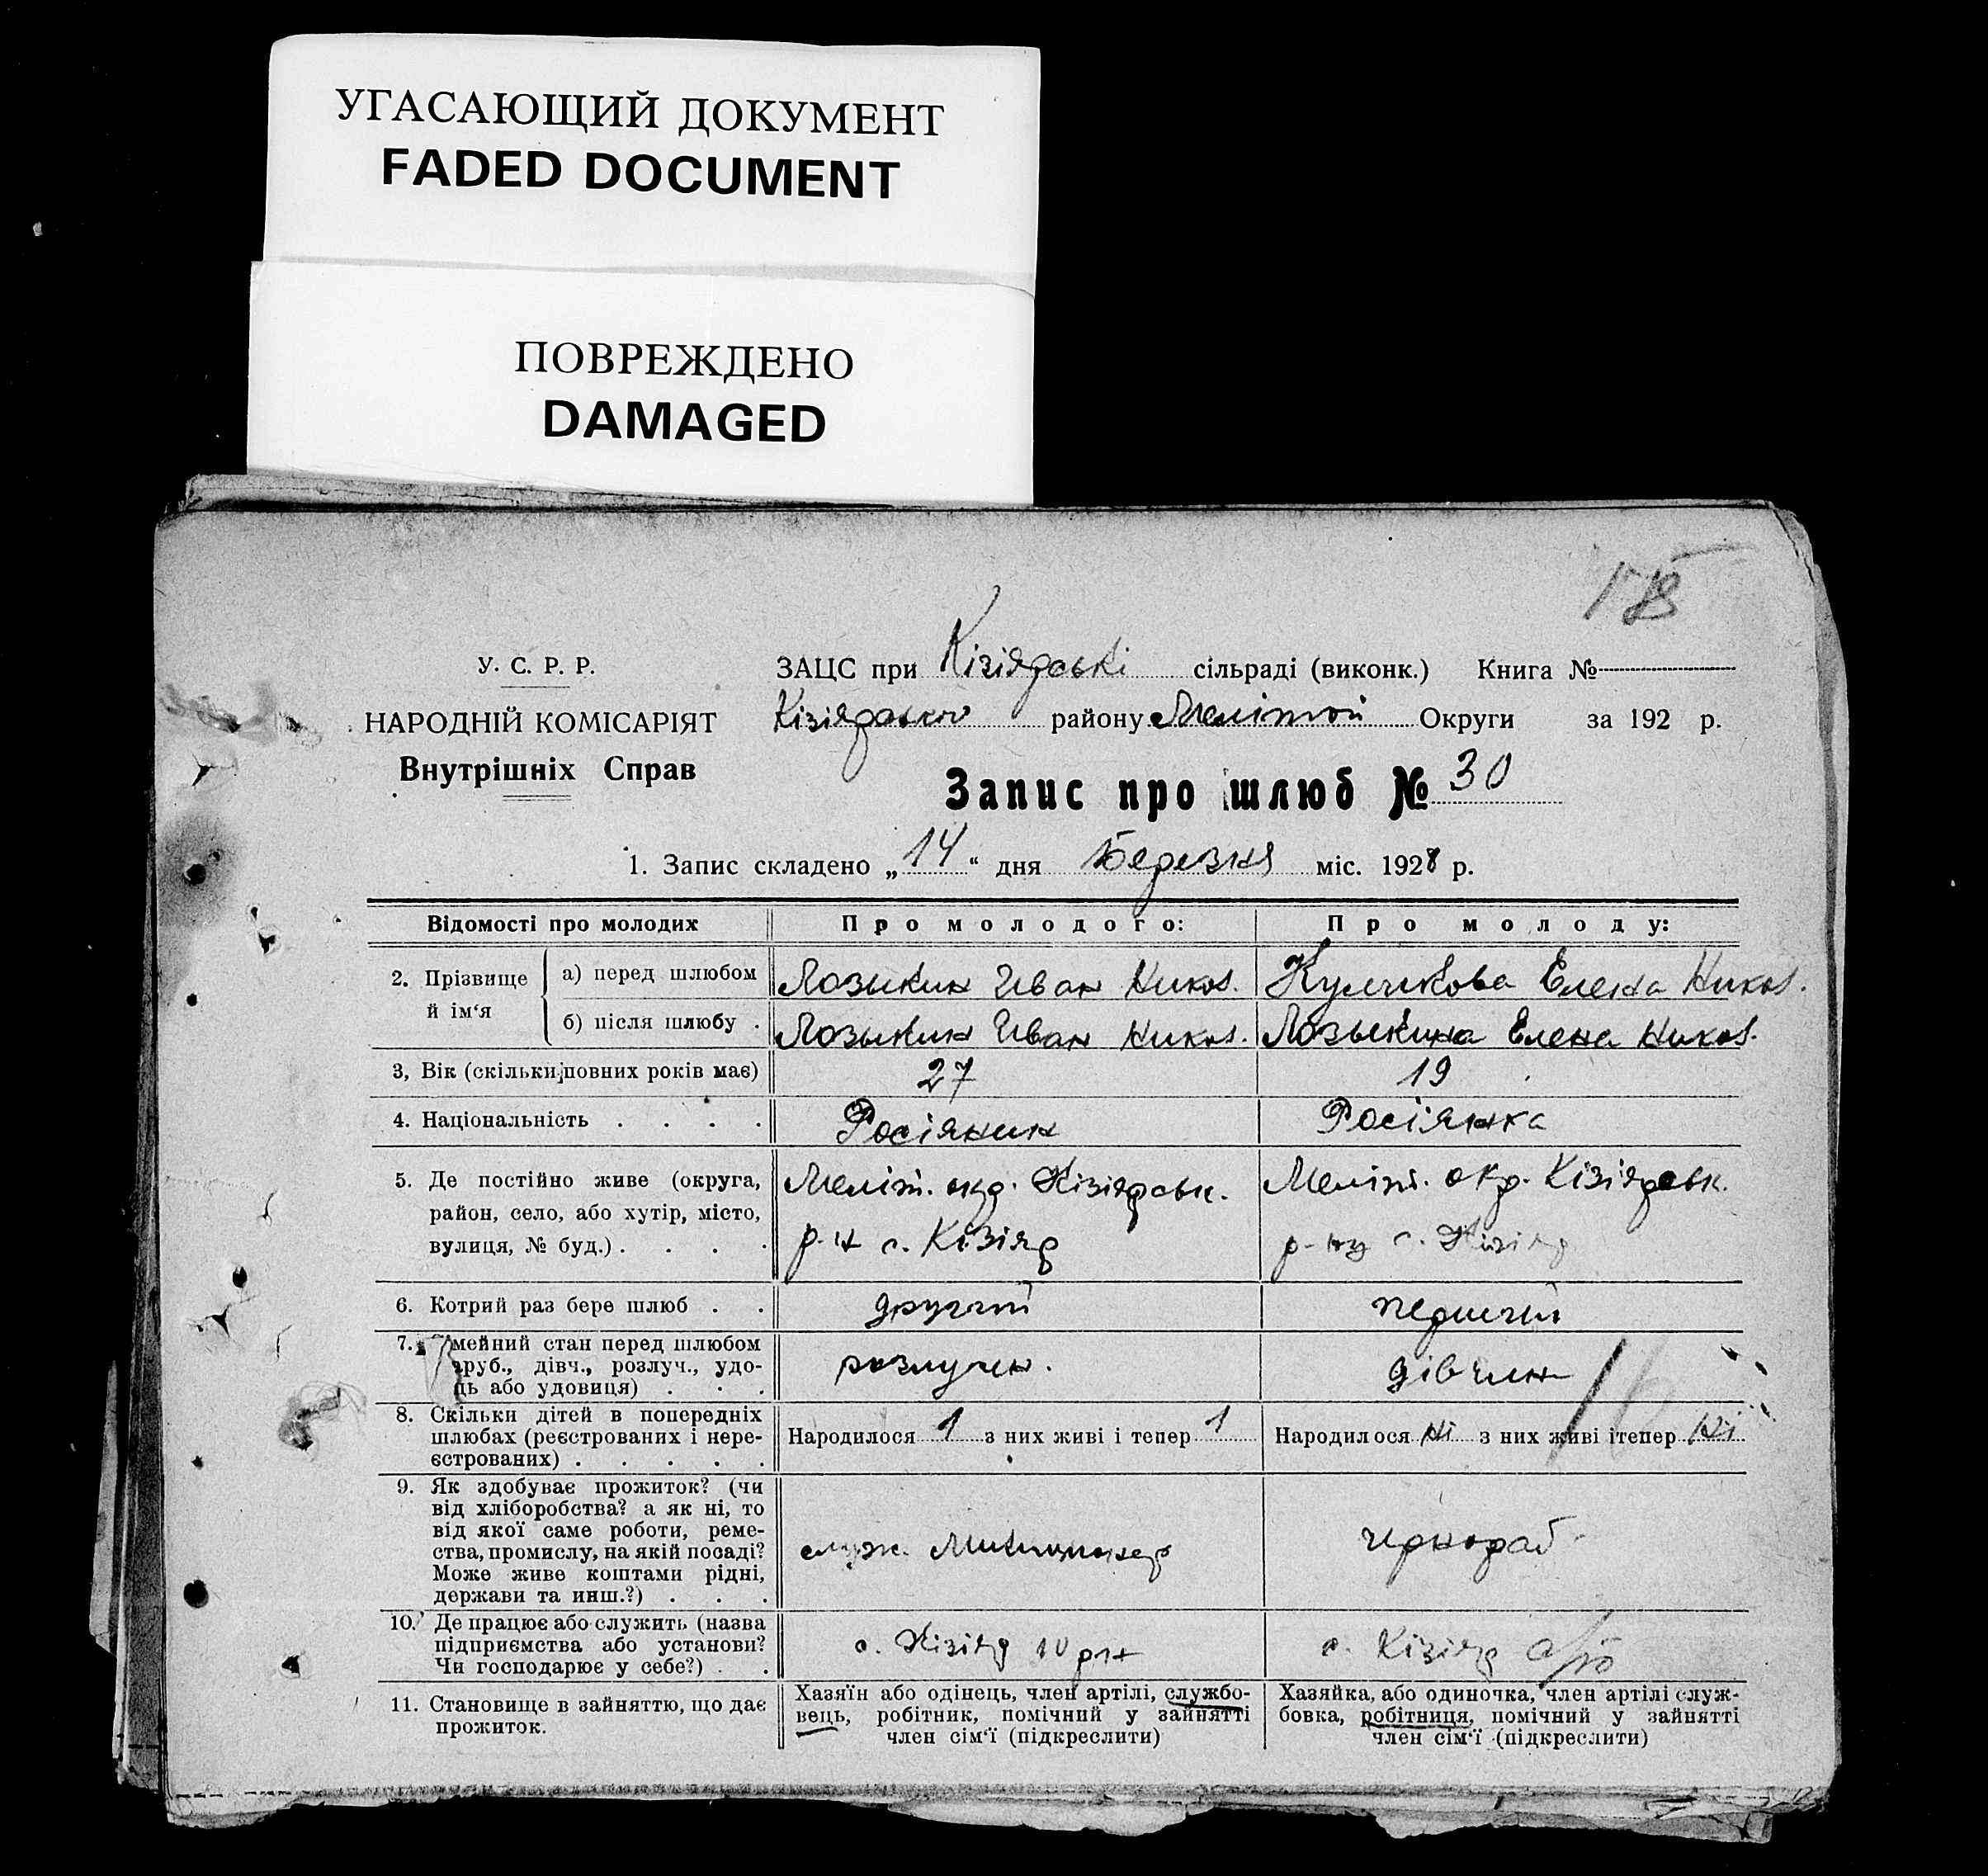 УГАСАЮЩИЙ ДОКУМЕНТ
FADED DOCUMENT
ПОВРЕЖДЕНО
DAMAGED
У. С. Р. Р.
НАРОДНІЙ КОМІСАРІЯТ
Внутрішніх Справ
ЗАЦС при Кізіярські сільраді (виконк.) Книга №
Кізіярсько району Меліт Округи за 192 р.
Запис про шлюб № 30
1. Запис складено „14“ дня Березня міс. 1928 р.
Відомості про молодих
Про молодого:
Про молоду:
2. Прізвище й ім‘я
а) перед шлюбом
Лозыкин Иван Никол.
Куликова Елена Никол.
б) після шлюбу .
Лозыкин Иван Никол.
Лозыкина Елена Никол.
3, Вік (скільки повних років має)
27
19
4. Національність . . . .
Росіянин
Росіянка
5. Де постійно живе (округа,
район, село, або хутір, місто,
вулиця, № буд.) . . . .
Меліт. окр. Кізіярськ.
р-н с. Кізіяр
Меліт. окр. Кізіярськ.
р-ну с. Кізіяр
6. Котрий раз бере шлюб . .
другий
перший
7. мейний стан перед шлюбом
руб., дівч., розлуч., удо-
ць або удовиця) . . .
розлучен.
дівчин
8. Скільки дітей в попередніх
шлюбах (реєстрованих і нере-
єстрованих) . . . . .
Народилося 1 з них живі і тепер 1
Народилося ні з них живі ітепер ні
9. Як здобуває прожиток? (чи
від хліборобства? а як ні, то
від якої саме роботи, реме-
ства, промислу, на якій посаді?
Може живе коштами рідні,
держави та инш.?) . . .
служ. Милиционер
чернораб.
10. Де працює або служить (назва
підприємства або установи?
Чи господарює у себе?) . .
с. Кізіяр
с. Кізіяр
11. Становище в зайняттю, що дає
прожиток.
Хазяїн або одінець, член артілі, службо-
вець, робітник, помічний у зайнятті
член сім‘ї (підкреслити)
Хазяйка, або одиночка, член артілі служ-
бовка, робітниця, помічний у зайнятті
член сім‘ї (підкреслити)